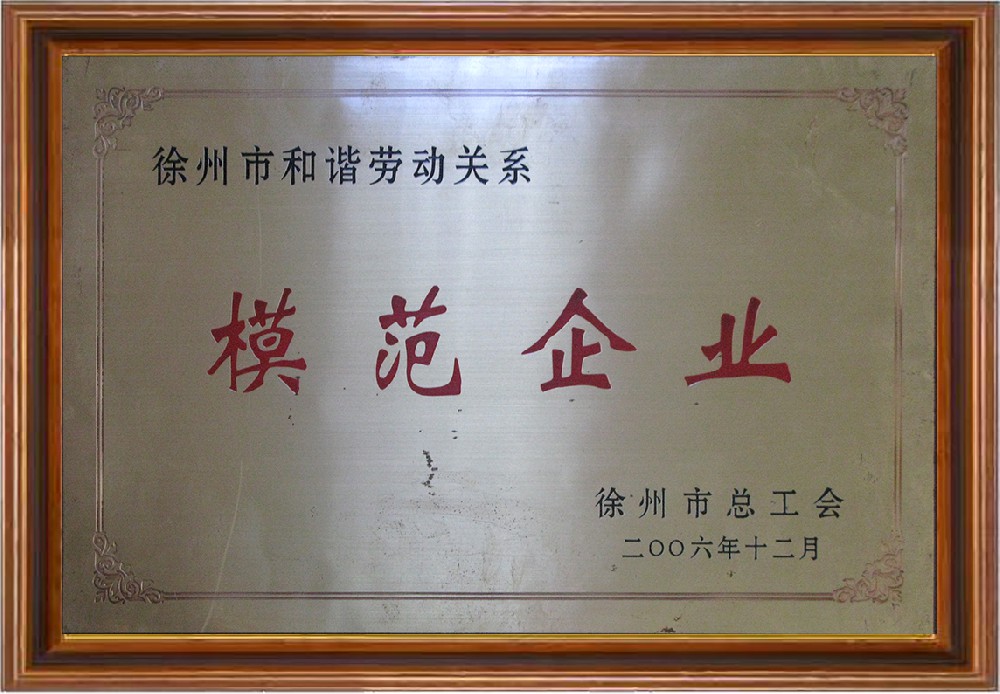 徐州市和谐劳动关系
模范企业
徐州市总工会
二〇〇六年十二月